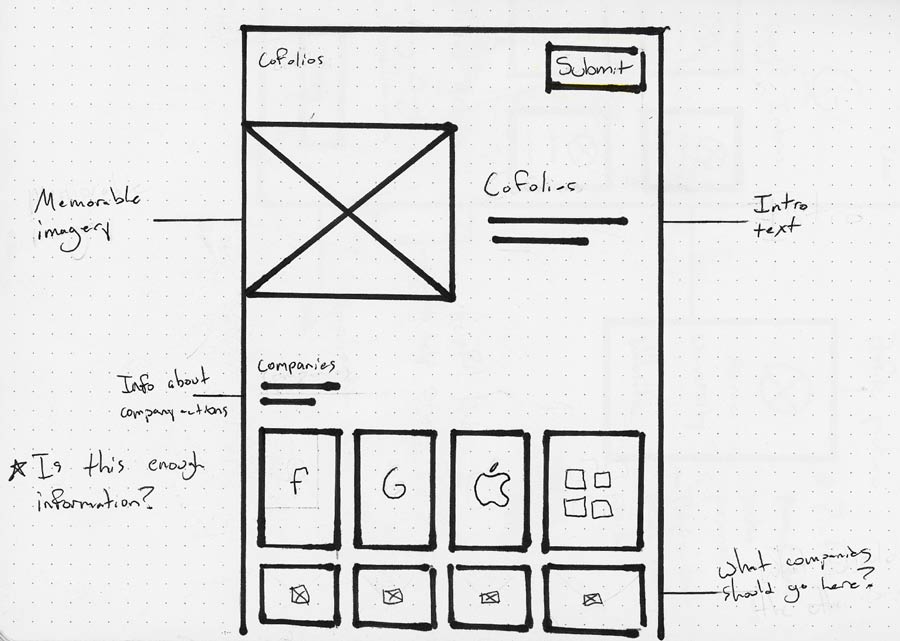 Cofolios
Submit
Memorable
imagery
Cofolios
Intro
text
Companies
Info about
f
G
★ Is this enough
information?
What companies
should go here?